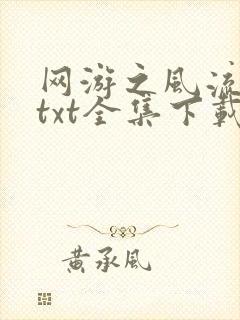 网游之风流
txt全集下载
黄承风